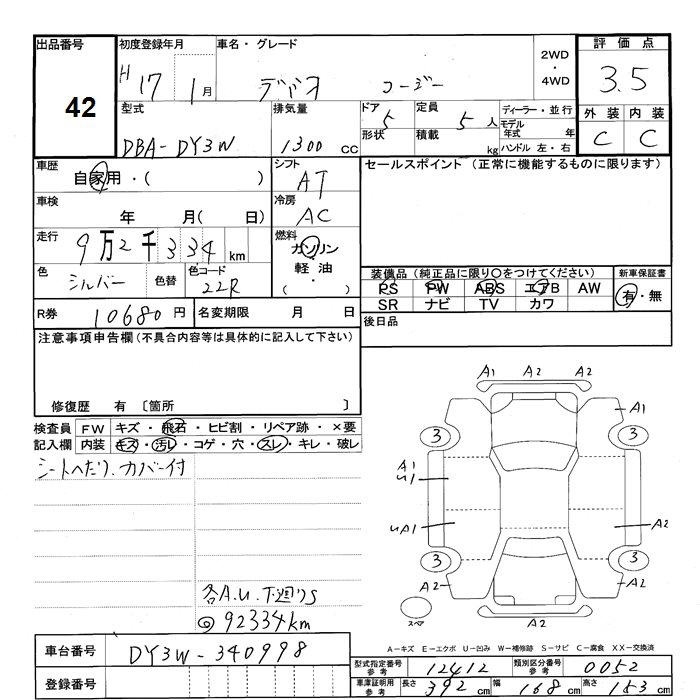 出品番号 初度登録年月 車名・グレード 2WD ・ 4WD 評価点
42 H 17 1月 デミオ コージー 3.5
型式 排気量 ドア 5 定員 5人 ディーラー・並行 外装 内装
DBA-DY3W 1300cc 形状 積載 kg モデル年式 年 C C
ハンドル 左・右
車歴 自家用・( ) シフト AT セールスポイント (正常に機能するものに限ります)
車検 年 月( 日) 冷房 AC
走行 9万2千334km 燃料 ガソリン・軽油・( )
色 シルバー 色替 色コード 22R
装備品 (純正品に限り○をつけてください) 新車保証書
PS PW ABS エアB AW 有・無
SR ナビ TV カワ
R券 10680円 名変期限 月 日 後日品
注意事項申告欄 (不具合内容等は具体的に記入して下さい)
修復歴 有 〔箇所 〕
検査員 FW キズ・飛石・ヒビ割・リペア跡・×要
記入欄 内装 キズ・汚レ・コゲ・穴・スレ・キレ・破レ
シートへたり、カバー付
各A.U.下廻りS
◎92334km
A1 A2 A2
A1
3 3
A1
U1
UA1 A2
3 3
A2 A2
A2
スペア
A-キズ E-エクボ U-凹み W-補修跡 S-サビ C-腐食 XX-交換済
車台番号 DY3W-340998
登録番号
型式指定番号 参考 12412 類別区分番号 参考 0052
車庫証明用 参考 長さ 392cm 幅 168cm 高さ 153cm